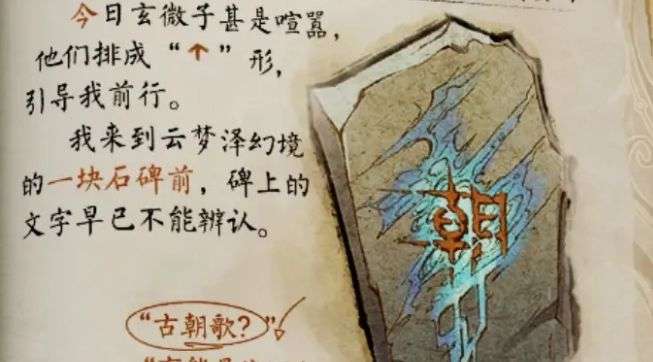 今日玄微子甚是喧嚣，
他们排成“↑”形，
引导我前行。
我来到云梦泽幻境
的一块石碑前，碑上的
文字早已不能辨认。
朝
“古朝歌？”